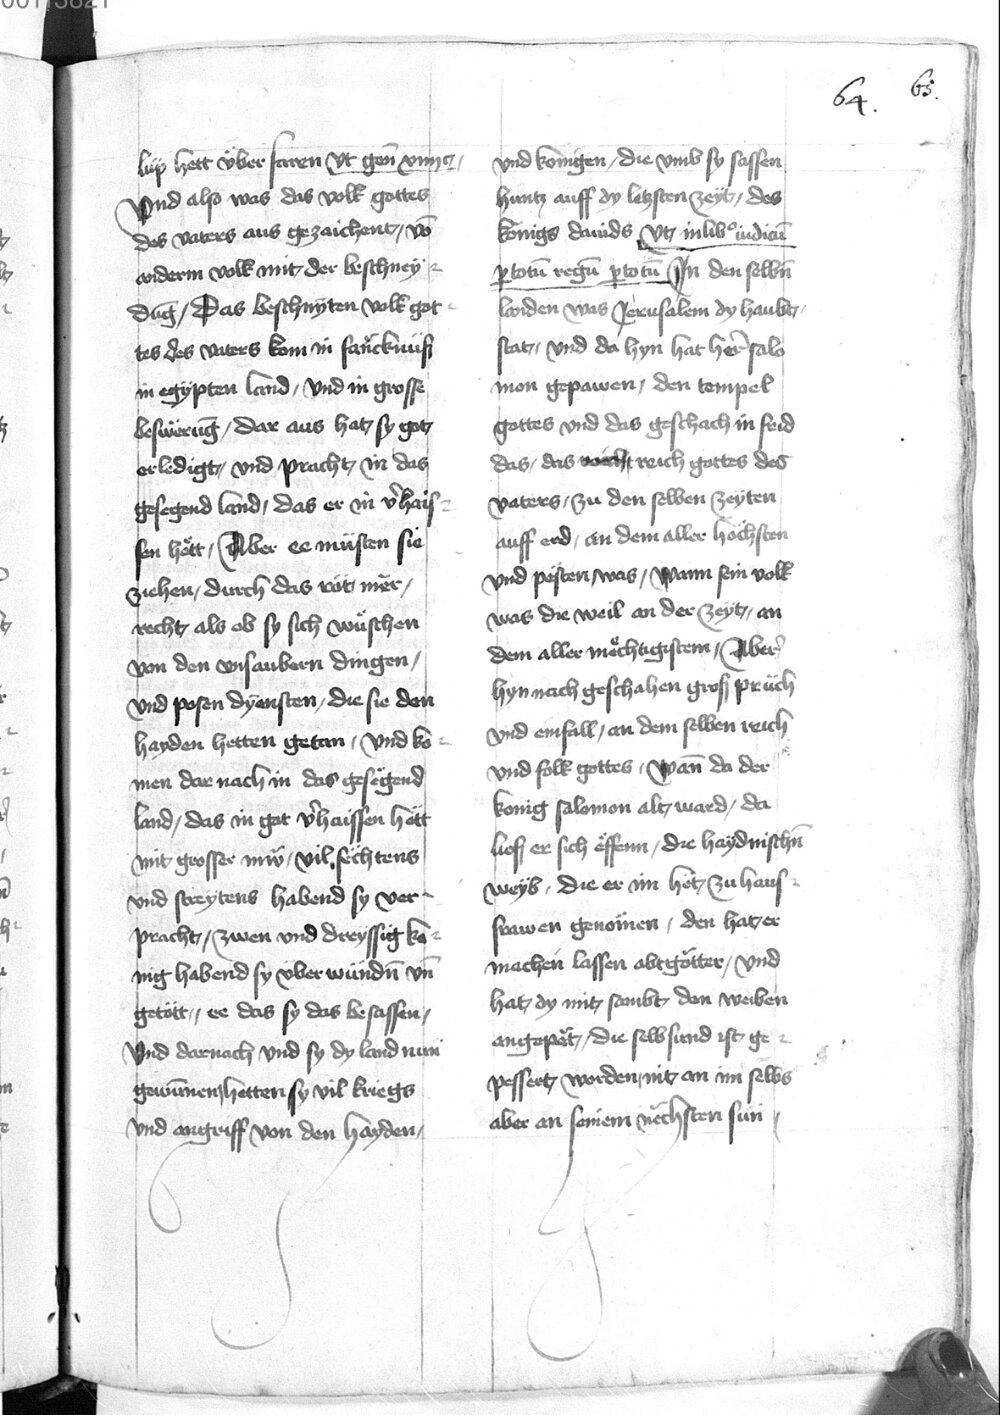 64. 65.
lüp hett über faren Vt gen̄ xvii c̣,
Vnd also was das volk gottes
des vaters aus gezaichent, vō
anderm volk mit der beschney
dūg, Das beschnyten volk got
tes des vaters kom in fäncknüß
in egypten land, vnd in grosse
beswērūg, dar aus hat sy got
erledigt, vnd pracht in das
gesegend land, das er in v̉hais
sen hött, Aber ee müsten sie
ziehen, durch das rot mēr,
recht als ob sy sich wüschen
von den vnsaubern dingen,
vnd posen dyensten, die sie den
hayden hetten getan, vnd ko
men dar nach in das gesegend
land, das in got v̉haissen hett
mit grosser mü, vil fechtens
vnd streytens habend sy ver
pracht, zwen vnd dreyssig ko
nig habend sy über wündn̄ vn̄
getött, ee das sy das besassen,
Vnd darnach vnd sy dy land nun
gewūnen, hetten sy vil kriegs
vnd angriff von den hayden,
vnd königen, die vmb sy sassen
huntz auff dy letzsten zeyt, des
königs dauids Vt in libº iudicū
p totū regū p totū In den selbn̄
landen was Jerusalem dy haubt
stat, vnd da hyn hat her̄ salo
mon gepawen, den tempel
gottes vnd das geschach in frid
das, das reich gottes des
vaters, zu den selben zeyten
auff erd, an dem aller höchsten
vnd pesten was, wann sein volk
was die weil an der zeyt, an
dem aller mächtigistem, Aber
hyn nach geschahen groß prüch
vnd einfall, an dem selben reich
vnd folk gottes, wan̄ da der
konig salomon alt ward, da
ließ er sich effenn, die haydnischn̄
weyb, die er im het zu haus
frawen genomen, den hat er
machen lassen abtgötter, vnd
hat dy mit sambt den weiben
angepät, die selb sund ist ge
pessert worden, nit an im selbs
aber an seinem nächsten sün,